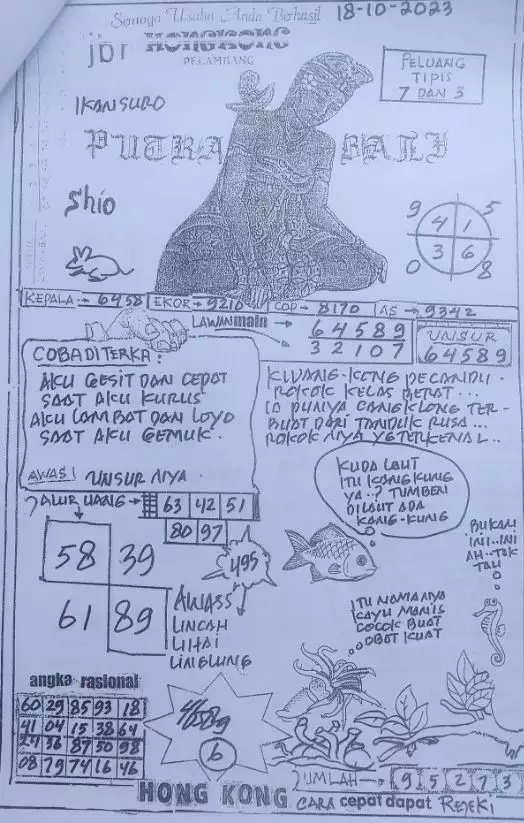 Semoga Usaha Anda Berhasil
18-10-2023
jbr HONGKONG
PELAMBANG
PELUANG
TIPIS
7 DAN 3
IKAN SURO
PUTRA BALI
Shio
9 5
4 1
3 6
0 8
KEPALA → 6458
EKOR → 9210
COP → 8170
AS → 9342
LAWAN main →
64589
32107
UNSUR
64589
COBA DITERKA:
AKU GESIT DAN CEPAT
SAAT AKU KURUS
AKU LAMBAT DAN LOYO
SAAT AKU GEMUK.
AWAS! UNSUR NYA.
KLUANG-KENG PECANDU.
ROKOK KELAS BERAT...
IA PUNYA CANGKLONG TER-
BUAT DARI TANDUK RUSA...
ROKOK NYA YG TERKENAL..
ALUR UANG → 63 42 51
80 97
58 39
61 89
495
AWASS
LINCAH
LIHAI
LINGLUNG
KUDA LAUT
ITU KANGKUNG
YA..? TUMBEN
DILAUT ADA
KANG-KUNG
BUKAN
INI..INI
AH..TAK
TAU
ITU NAMANYA
KAYU MANIS
COCOK BUAT
OBAT KUAT
angka rasional
60 29 85 93 18
41 04 15 38 64
24 36 87 50 98
08 79 74 16 46
4589
6
JUMLAH → 9 5 2 7 3
HONG KONG CARA cepat dapat REJEKI